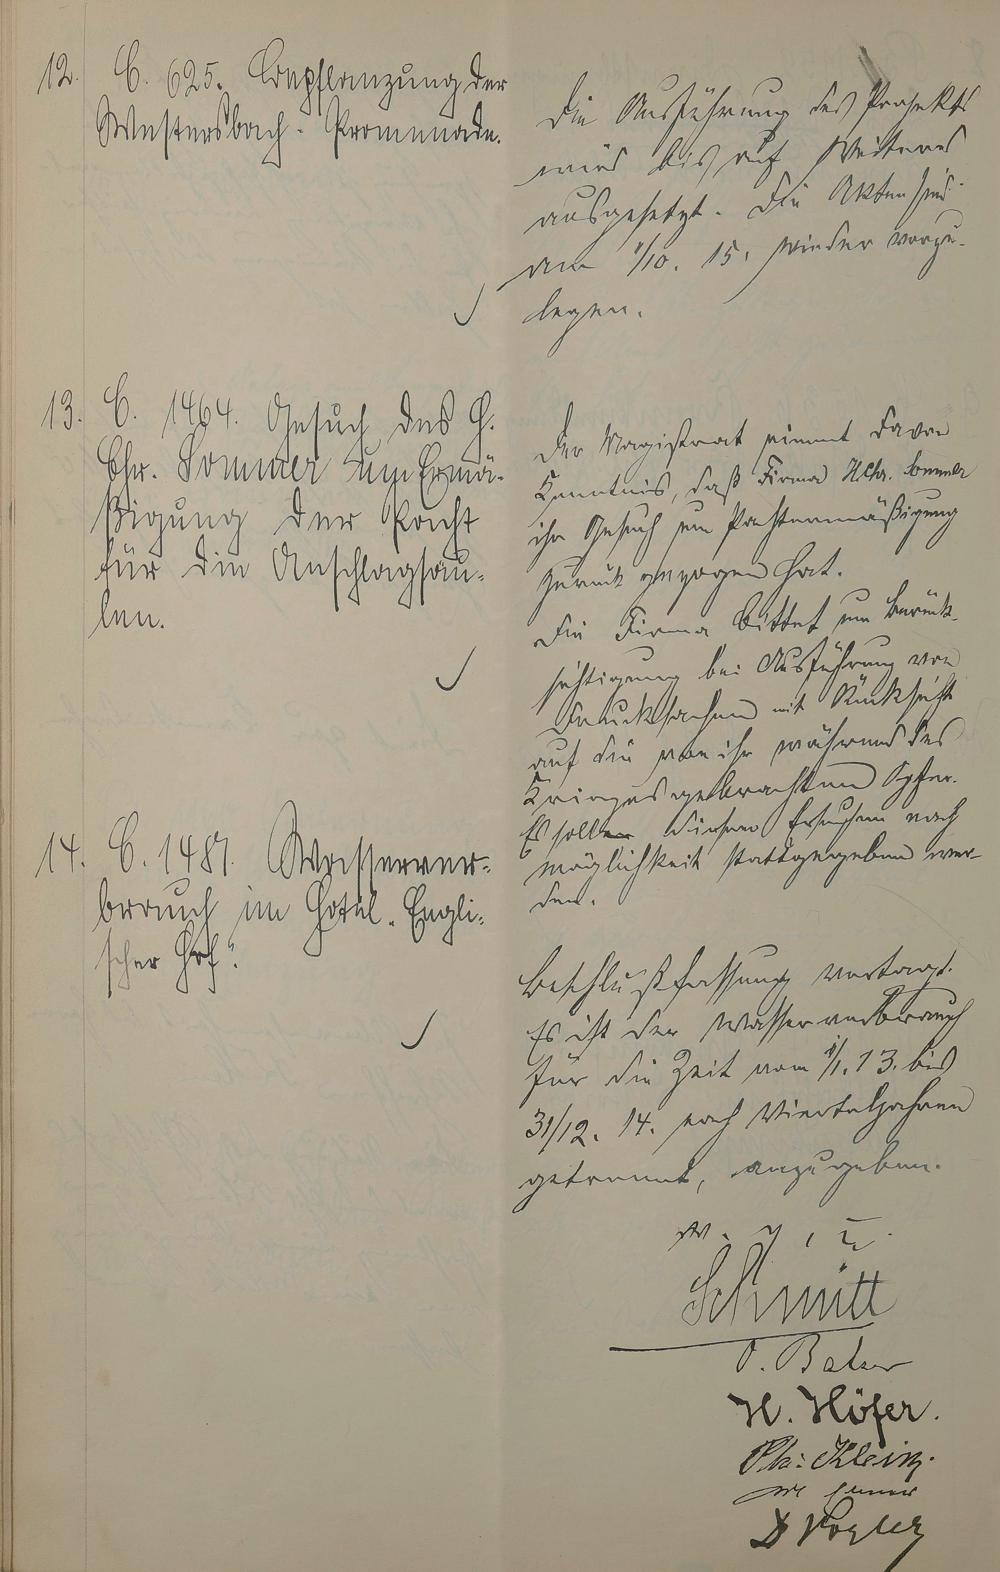 12. C. 625. Bepflanzung der
Westersbach-Promenade.
Die Ausführung des Projekts
wird bis auf Weiteres
ausgesetzt. Die Akten sind
am 1/10. 15. wieder vorzu-
legen.
13. C. 1464. Gesuch des H.
Chr. Sommer um Ermä-
ßigung der Pacht
für die Anschlagsäu-
len.
Der Magistrat nimmt davon
Kenntnis, daß Firma Hch. Sommer
ihr Gesuch um Pachtermäßigung
zurück gezogen hat.
Die Firma bittet um Berück-
sichtigung bei Ausführung von
Drucksachen mit Rücksicht
auf die von ihr während des
Krieges gebrachten Opfer.
Es soll diesem Ersuchen nach
Möglichkeit stattgegeben wer-
den.
14. C. 1487. Wasserver-
brauch im Hotel "Engli-
scher Hof".
Beschlußfassung vertagt.
Es ist der Wasserverbrauch
für die Zeit vom 1/1. 13. bis
31/12. 14. nach Vierteljahren
getrennt, anzugeben.
v. g. u.
Schmitt
H. Höfer.
Ph: Klein.
D Vogler